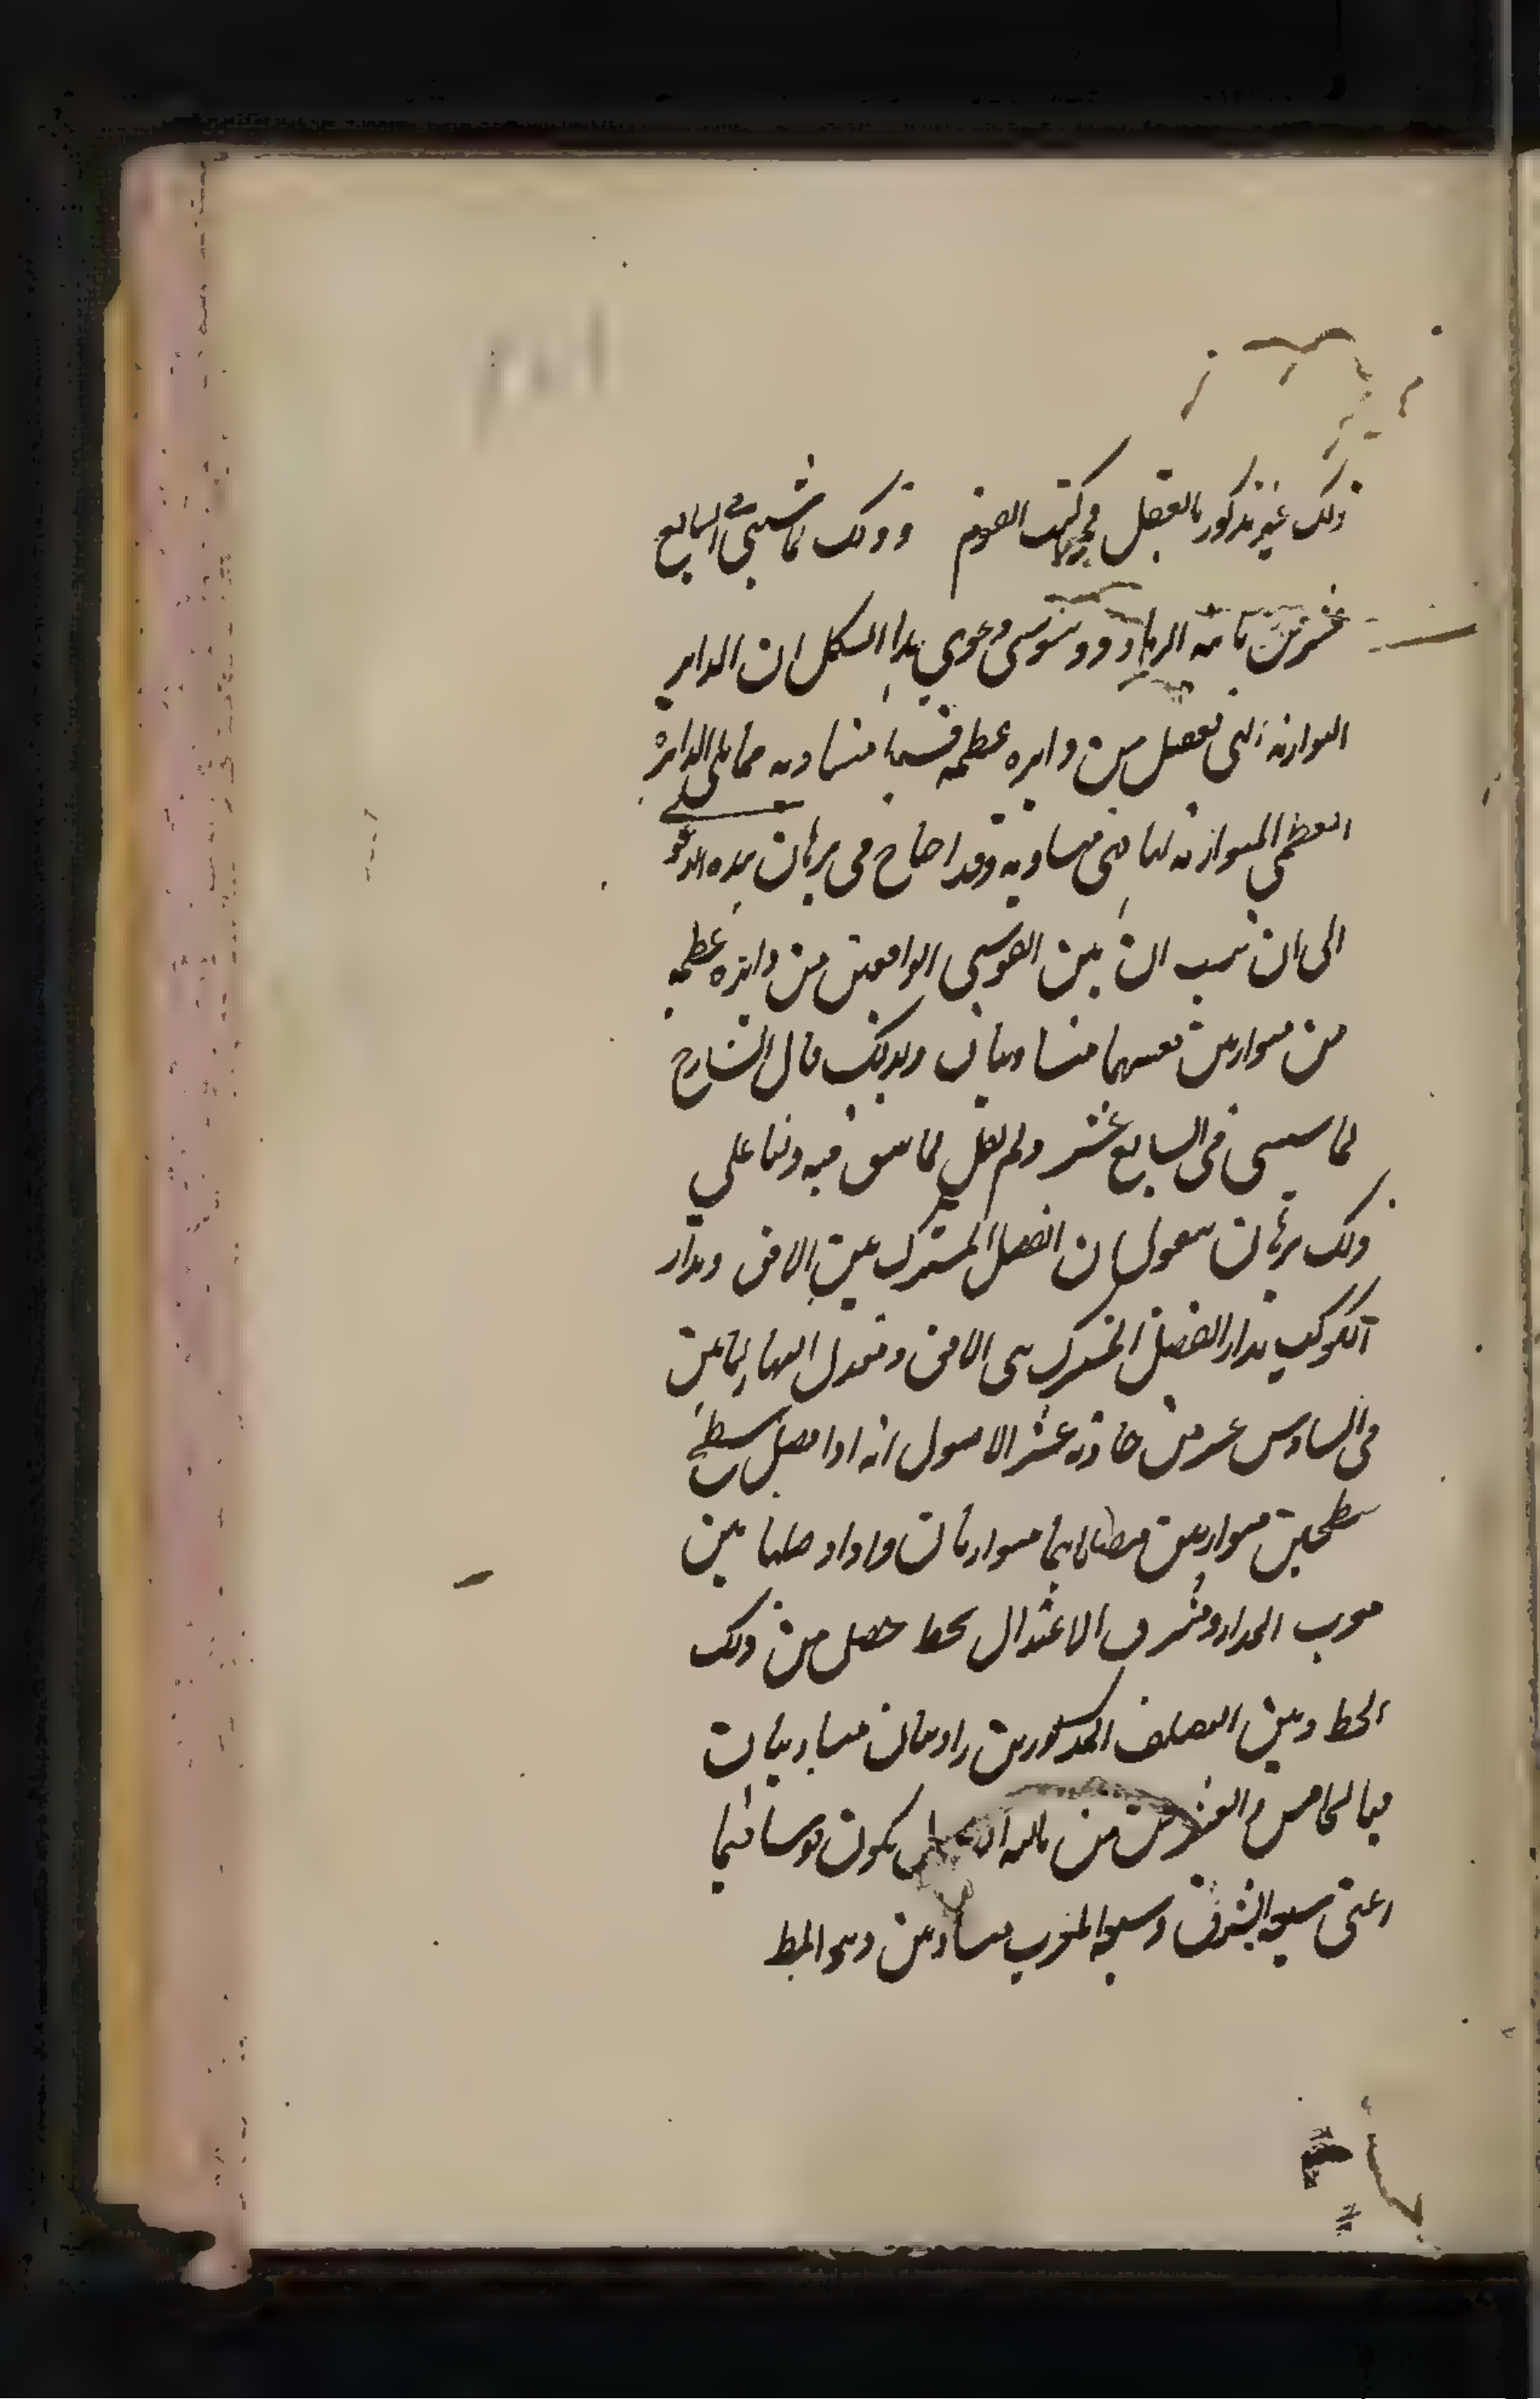 ذلك غير مذكور بالفعل في كتب القوم وذلك لما سيجئ في السابع
عشر من ثانية الاكر لثاوذوسيوس دعوي هذا الشكل ان الدواير
المتوازية التي تفصل من دايره عظمه قسيا متساويه مما يلي الدايرة
العظمي الموازية لها فهي متساويه وقد احتاج في برهان هذه الدعوي
الى ان يبين ان بين القوسين الواقعتين من دايره عظمه
من متوازيين نفسهما متساويتان ولذلك قال الشارح
لما سيجئ في السابع عشر ولم يقل لما سبق فيه ولنا علي
ذلك برهان فنقول ان الفصل المشترك بين الافق ومدار
الكوكب مواز للفصل المشترك بين الافق ومعدل النهار لما تبين
في السادس عشر من حادية عشر الاصول انه اذا فصل سطح
سطحين متوازيين ففصلاهما متوازيان واذا وصلنا بين
مغرب المدار ومشرق الاعتدال بخط حصل من ذلك
الخط وبين الفصلين المذكورين زاويتان متساويتان
فبالخامس والعشرين من ثالثه الاصول يكون قوساهما
اعني سعة المشرق وسعة المغرب متساويتين وهو المط